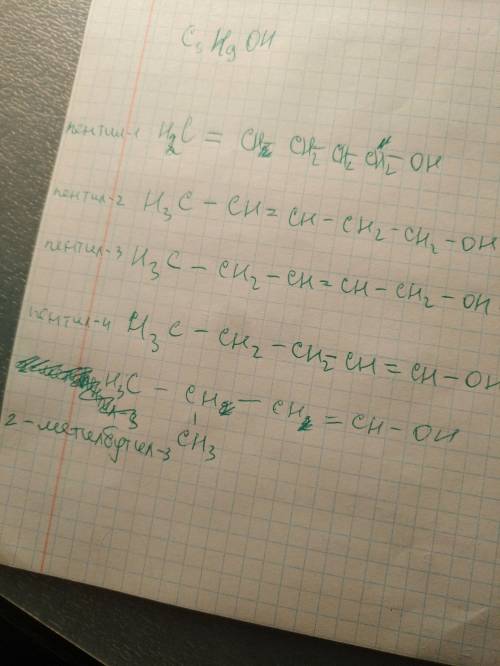 C5H9OH
пентил-1 H2C = CH2 CH2 CH2 CH2 - OH
пентил-2 H3C - CH = CH - CH2 - CH2 - OH
пентил-3 H3C - CH2 - CH = CH - CH2 - OH
пентил-4 H3C - CH2 - CH2 - CH = CH - OH
H3C - CH - CH = CH - OH
CH3
2-метилбутил-3